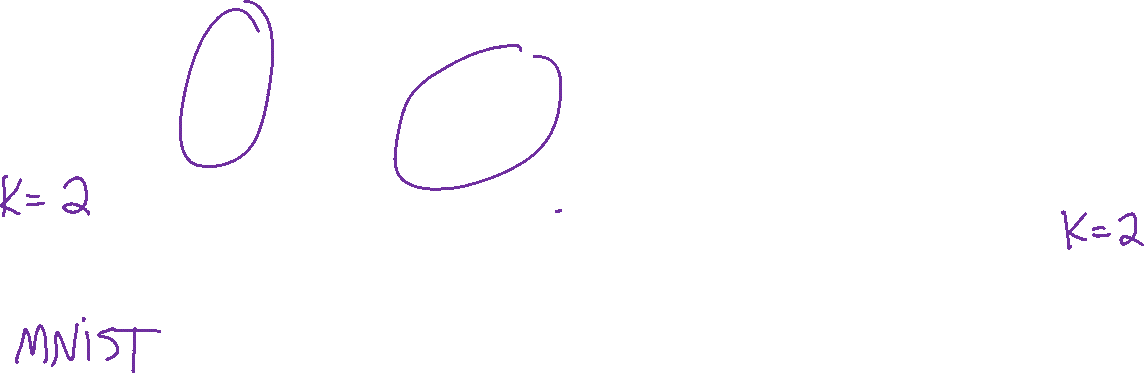 K= 2
K=2
MNiST